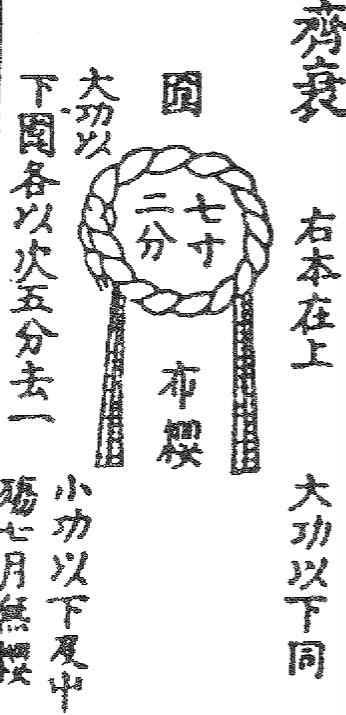 齊衰　右本在上　大功以下同
圍
七寸
二分
布纓
大功以
下圍各以次五分去一
小功以下及中
殤七月無纓